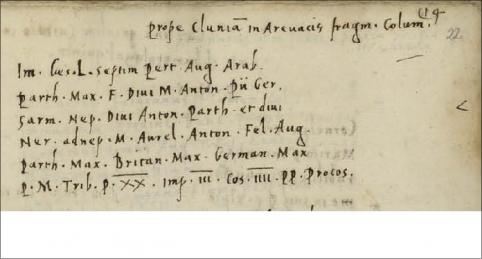 prope Cluniā in Arevacis fragm. Colum. 114
22
Im. Cæs. L. septim pert. Aug. Arab.
parth. Max. F. Divi M. Anton. Pii Ger.
Sarm. Nep. Divi Anton. Parth. et divi
Ner. adnep. M. Aurel. Anton. Fel. Aug.
Parth. Max. Britan. Max. German. Max
P. M. Trib. P. X̅X̅. Imp. I̅I̅I̅. Cos. I̅I̅I̅I̅. PP. Procos.